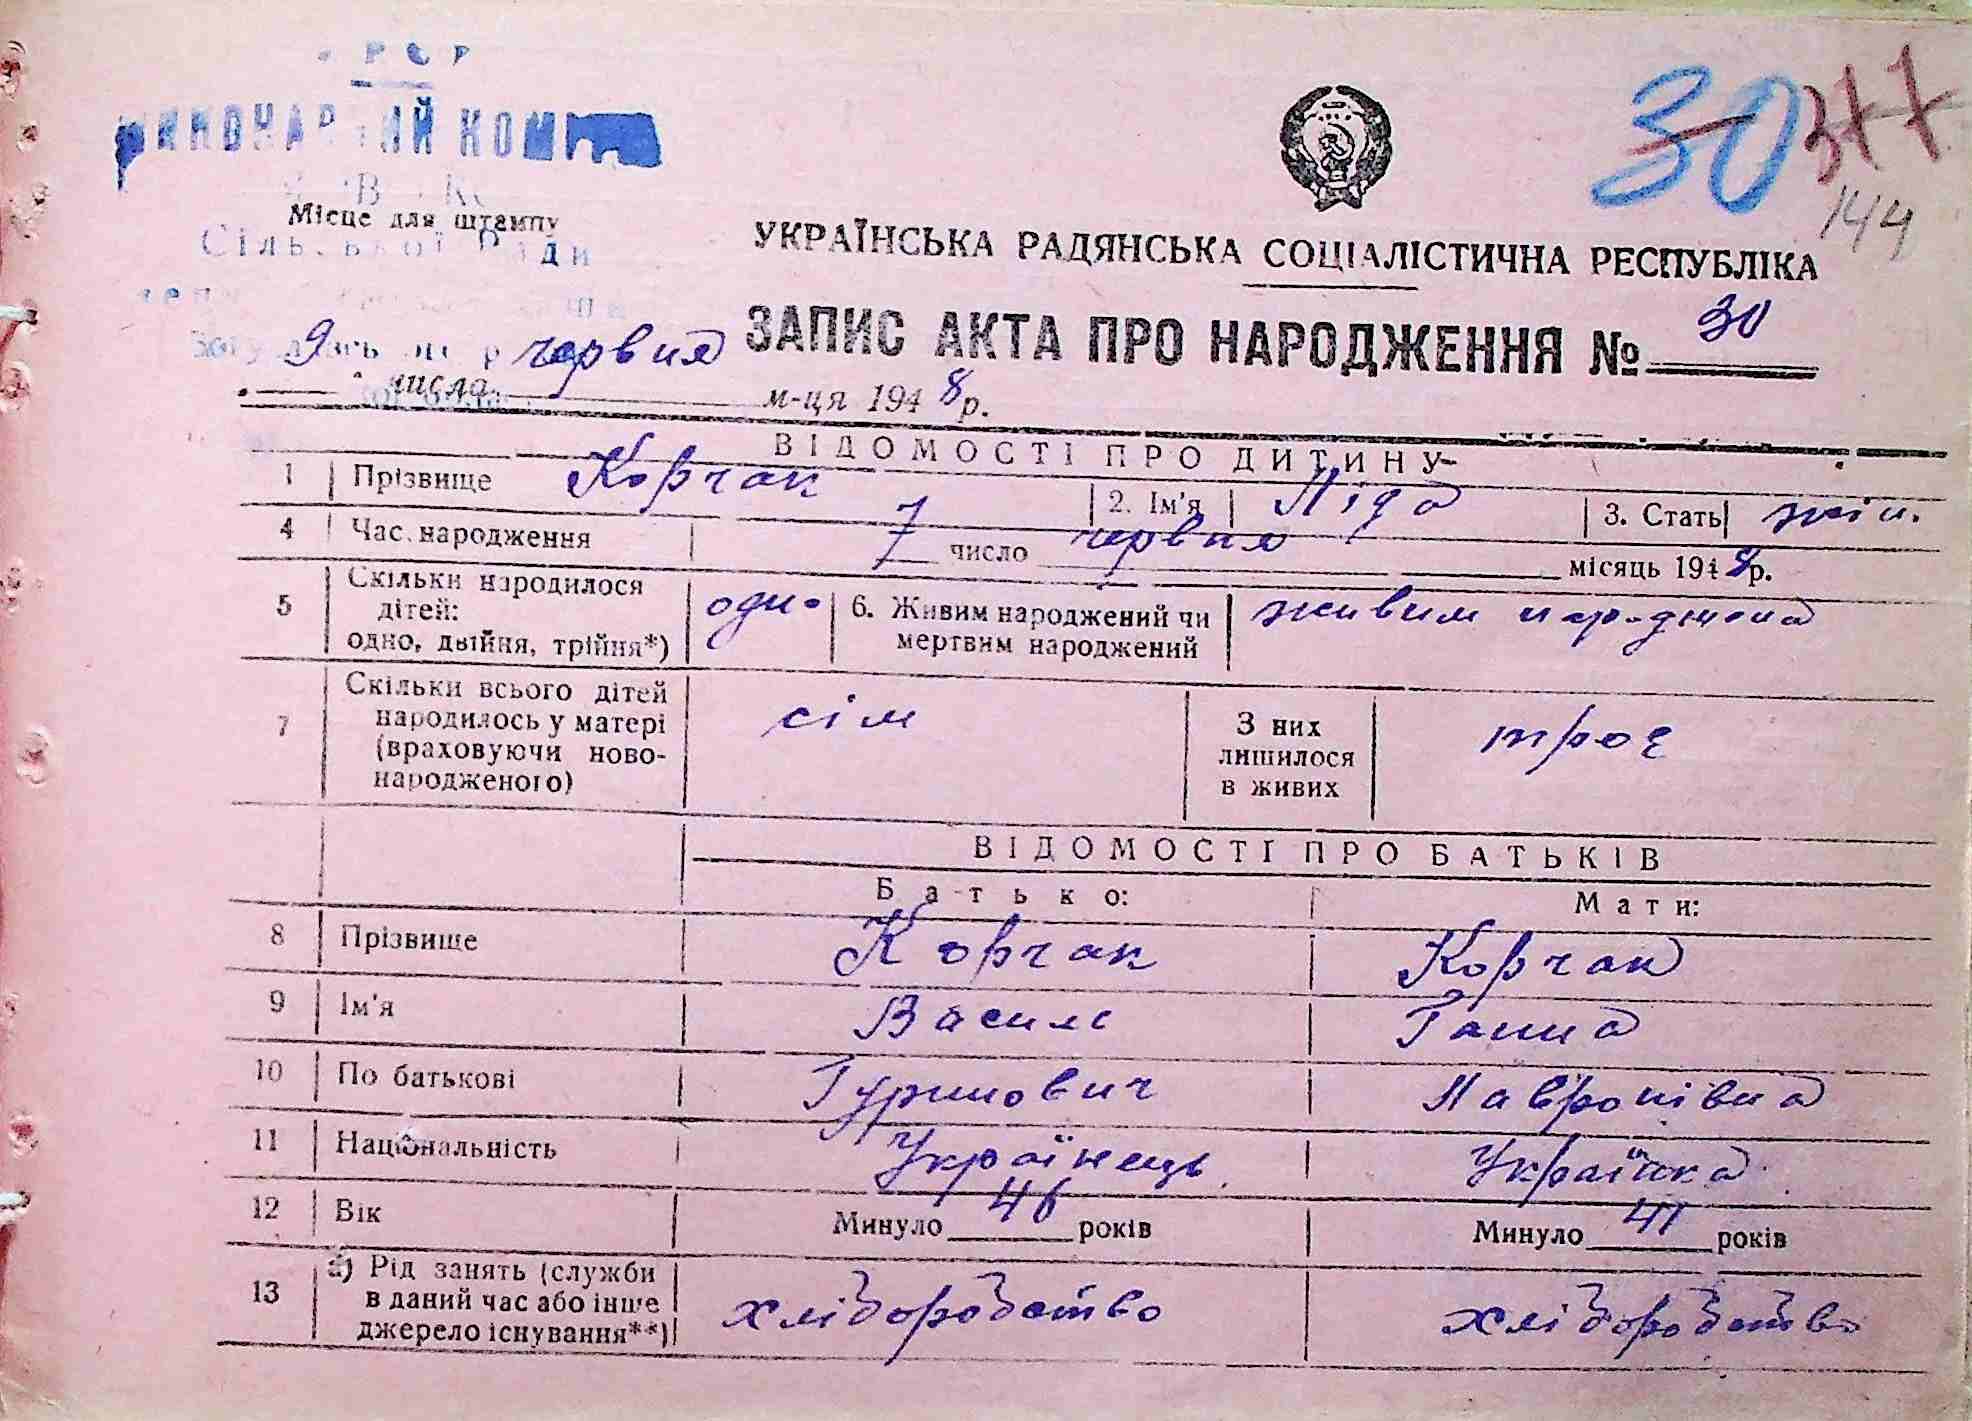 30 377
144
Місце для штампу
Сільської Ради
УКРАЇНСЬКА РАДЯНСЬКА СОЦІАЛІСТИЧНА РЕСПУБЛІКА
ЗАПИС АКТА ПРО НАРОДЖЕННЯ № 30
9 числа червня м-ця 1948 р.
ВІДОМОСТІ ПРО ДИТИНУ
1 Прізвище Корчак 2. Ім'я Ліда 3. Стать жін.
4 Час народження 7 число червня місяць 1948 р.
5 Скільки народилося дітей: одно, двійня, трійня*) одно 6. Живим народжений чи мертвим народжений живим народжена
7 Скільки всього дітей народилось у матері (враховуючи ново-народженого) сім З них лишилося в живих троє
ВІДОМОСТІ ПРО БАТЬКІВ
Батько: Мати:
8 Прізвище Корчак Корчак
9 Ім'я Василь Ганна
10 По батькові Гуринович Лавронівна
11 Національність Українець Українка
12 Вік Минуло 46 років Минуло 41 років
13 а) Рід занять (служби в даний час або інше джерело існування**) хліборобство хліборобство